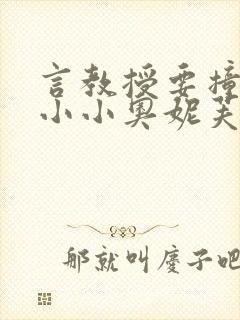 言教授要撞
小小奥妮芙
那就叫庆子吧